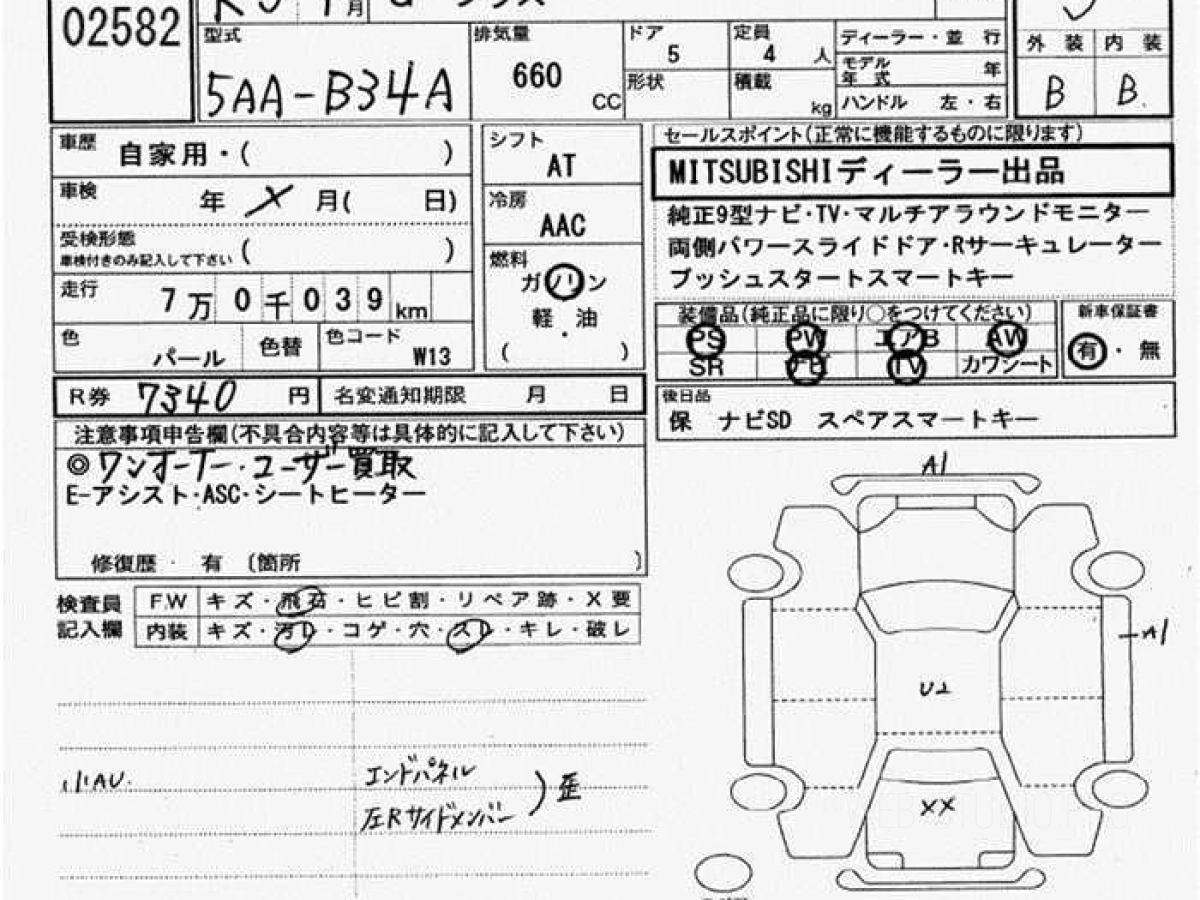 02582
月
型式
5AA-B34A
排気量
660
CC
ドア
5
形状
定員
4 人
積載
kg
ディーラー・並 行
モデル年式 年
ハンドル 左・右
外 装
内 装
B
B
車歴
自家用・( )
車検
年 メ 月( 日)
受検形態
車検付きのみ記入して下さい ( )
走行
7万0千039km
色
パール
色替
色コード
W13
シフト
AT
冷房
AAC
燃料
ガソリン
軽・油
( )
セールスポイント(正常に機能するものに限ります)
MITSUBISHIディーラー出品
純正9型ナビ・TV・マルチアラウンドモニター
両側パワースライドドア・Rサーキュレーター
プッシュスタートスマートキー
装備品(純正品に限り○をつけてください)
PS PW エアB AW
SR ナビ TV カワシート
新車保証書
有・無
R券 7340 円
名変通知期限 月 日
後日品
保 ナビSD スペアスマートキー
注意事項申告欄(不具合内容等は具体的に記入して下さい)
◎ワンオーナー・ユーザー買取
E-アシスト・ASC・シートヒーター
修復歴・ 有 〔箇所 〕
検査員
記入欄
F.W キズ・飛石・ヒビ割・リペア跡・X要
内装 キズ・汚レ・コゲ・穴・スレ・キレ・破レ
A1
A1
U2
XX
小AU.
エンドパネル
左Rサイドメンバー ) 歪